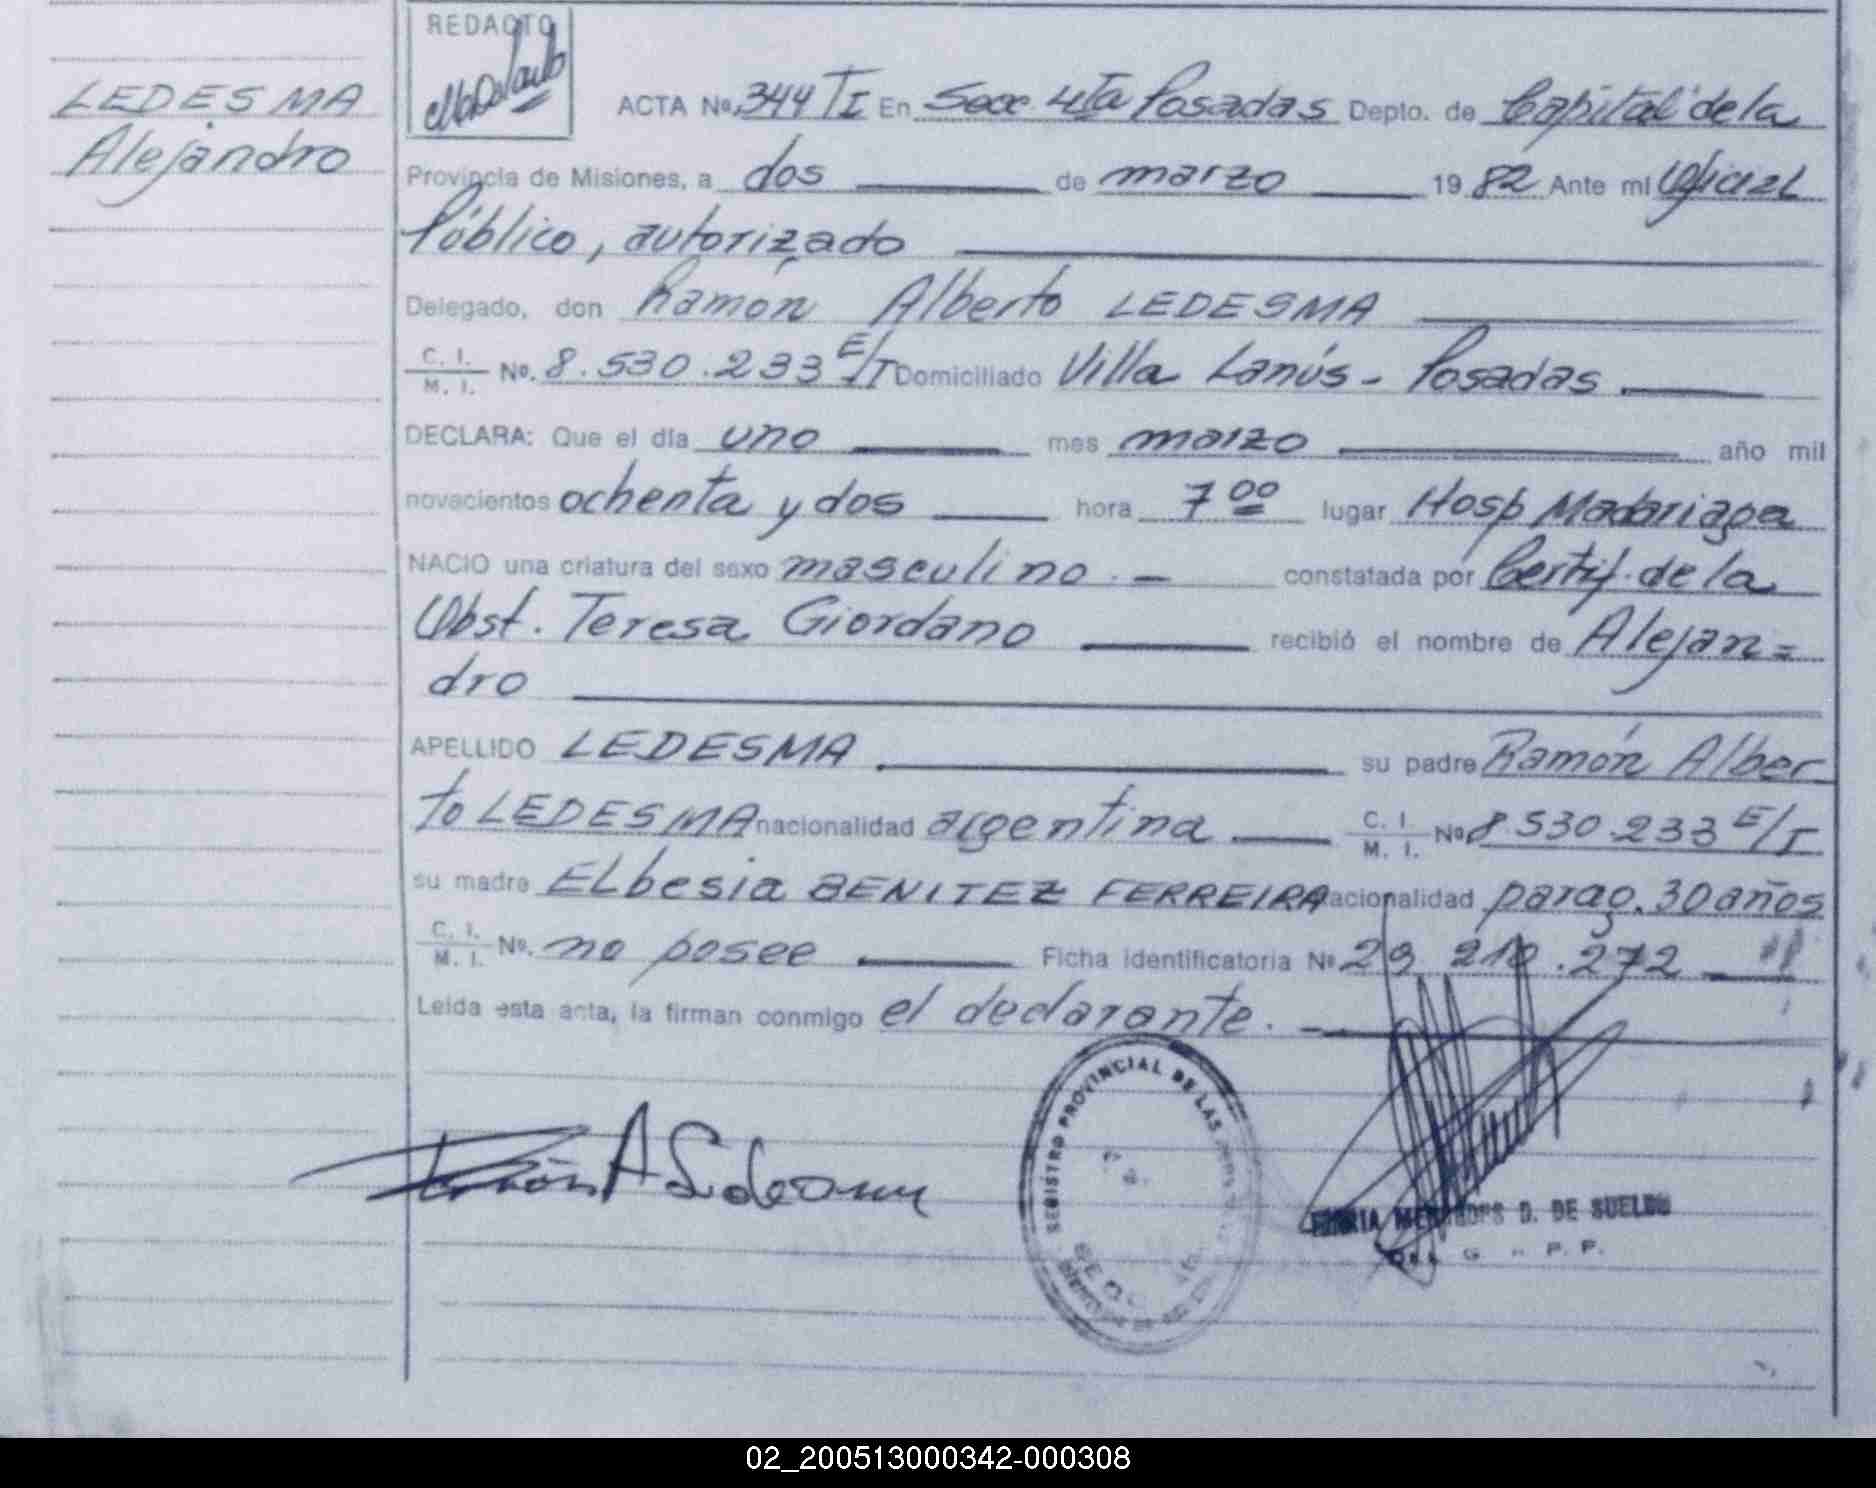 LEDESMA
Alejandro
REDACTO
ACTA No. 344 TI En Secc 4Ta Posadas Depto. de Capital de la
Provincia de Misiones, a dos de marzo 19 82 Ante mí Oficial
Público, autorizado
Delegado, don Ramón Alberto LEDESMA
C. I. M. I. No. 8.530.233 E/I Domiciliado Villa Lanús - Posadas
DECLARA: Que el día uno mes marzo año mil
novecientos ochenta y dos hora 7 00 lugar Hosp Madariaga
NACIO una criatura del sexo masculino . - constatada por Certif. de la
Obst. Teresa Giordano recibió el nombre de Alejan=
dro
APELLIDO LEDESMA su padre Ramón Alber
to LEDESMA nacionalidad argentina C. I. M. I. No 8.530.233 E/I
su madre ELbesia BENITEZ FERREIRA nacionalidad parag. 30 años
C. I. M. I. No. no posee Ficha identificatoria No 29.210.272
Leida esta acta, la firman conmigo el declarante. -
REGISTRO PROVINCIAL DE LAS
D. DE SUELDO
02_200513000342-000308